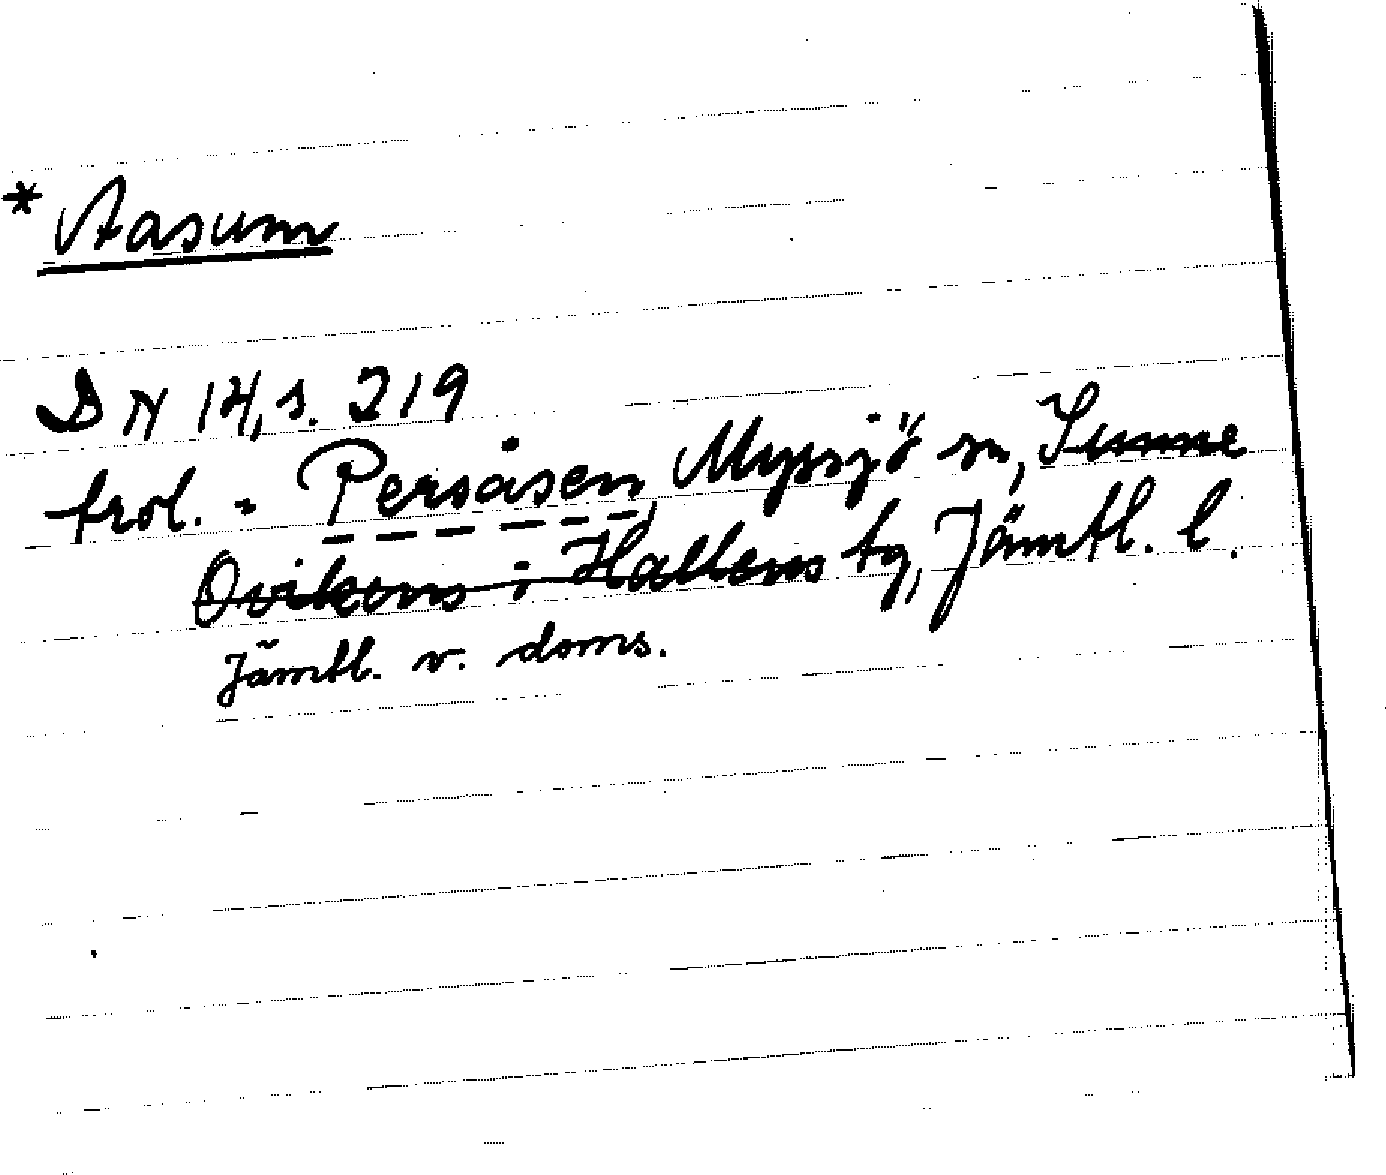 * Aasum
DN 14, s. 219
trol. = Persåsen, Myssjö sn, Sunne
Ovikens o Hallens tg, Jämtl. l.
Jämtl. v. doms.